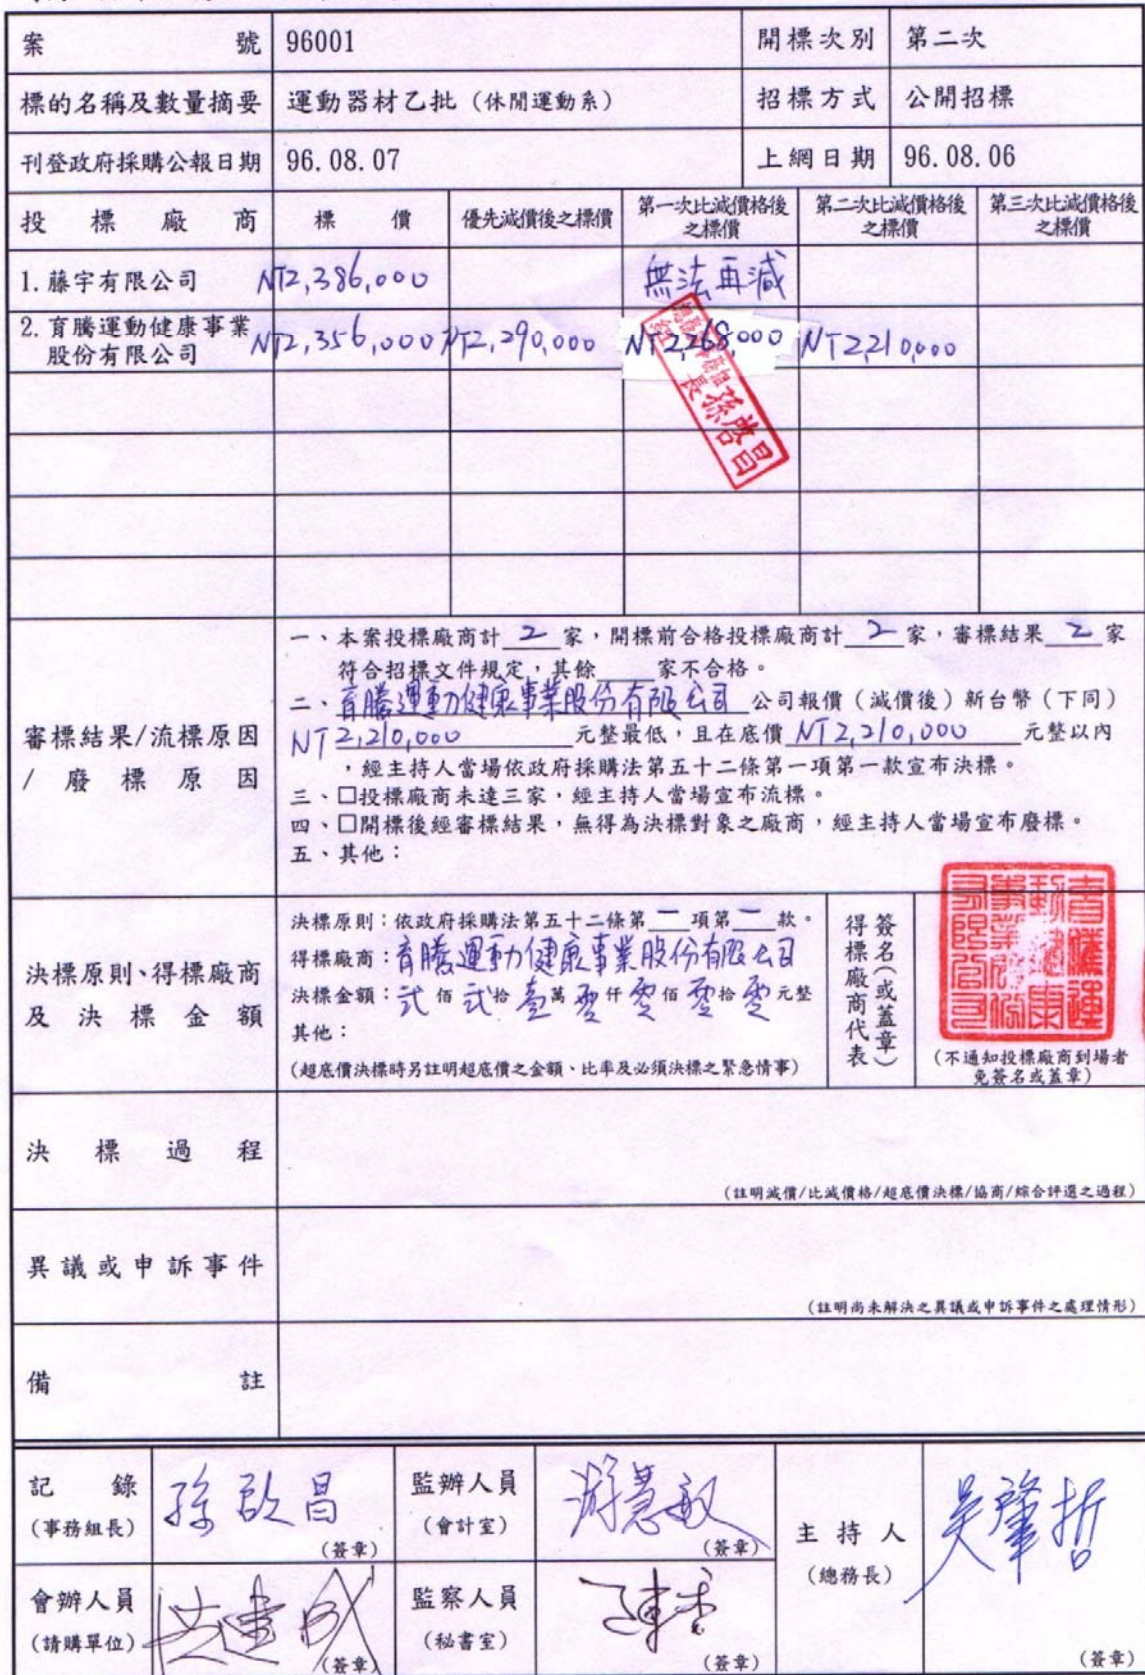 案號 96001 開標次別 第二次
標的名稱及數量摘要 運動器材乙批 (休閒運動系) 招標方式 公開招標
刊登政府採購公報日期 96.08.07 上網日期 96.08.06
投標廠商 標價 優先減價後之標價 第一次比減價格後之標價 第二次比減價格後之標價 第三次比減價格後之標價
1. 藤宇有限公司 NT2,386,000 無法再減
2. 育騰運動健康事業股份有限公司 NT2,356,000 NT2,290,000 NT2,268,000 NT2,210,000
審標結果/流標原因/廢標原因
一、本案投標廠商計 2 家,開標前合格投標廠商計 2 家,審標結果 2 家
符合招標文件規定,其餘 家不合格。
二、育騰運動健康事業股份有限公司 公司報價(減價後)新台幣(下同)
NT 2,210,000 元整最低,且在底價 NT2,210,000 元整以內
,經主持人當場依政府採購法第五十二條第一項第一款宣布決標。
三、□投標廠商未達三家,經主持人當場宣布流標。
四、□開標後經審標結果,無得為決標對象之廠商,經主持人當場宣布廢標。
五、其他:
決標原則、得標廠商及決標金額
決標原則:依政府採購法第五十二條第一項第一款。
得標廠商:育騰運動健康事業股份有限公司
決標金額:弍佰弍拾壹萬零仟零佰零拾零元整
其他:
(超底價決標時另註明超底價之金額、比率及必須決標之緊急情事)
得標廠商代表
簽名(或蓋章)
育騰運動健康事業股份有限公司
(不通知投標廠商到場者
免簽名或蓋章)
決標過程
(註明減價/比減價格/超底價決標/協商/綜合評選之過程)
異議或申訴事件
(註明尚未解決之異議或申訴事件之處理情形)
備註
記錄 孫啟昌 監辦人員 游慧敏 主持人 吳肇哲
(事務組長) (簽章) (會計室) (簽章) (總務長)
會辦人員 監察人員
(請購單位) (簽章) (秘書室) (簽章) (簽章)
長孫啓昌